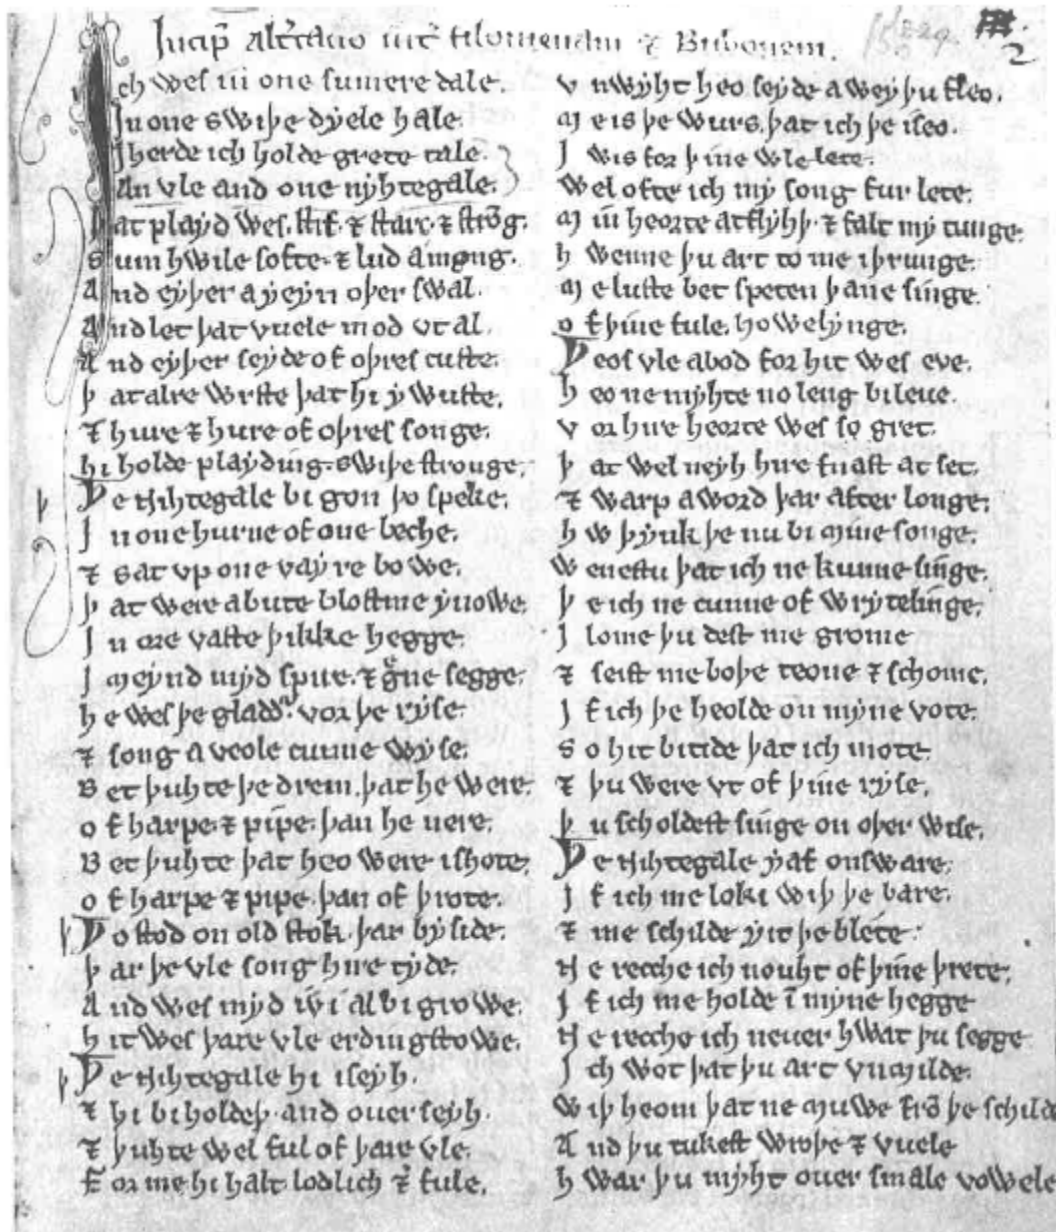 Incip̄ alt̄cacio int̄ filomenam ⁊ Bubonem.
Ich wes in one sumere dale.
In one swiþe dyele hale.
Iherde ich holde grete tale.
An vle and one nyhtegale.
þat playd wes stif. ⁊ starc ⁊ strōg.
Sum hwile softe. ⁊ lud among.
And eyþer ayeyn oþer swal.
And let þat vuele mod vt al.
And eyþer seyde of oþres custe.
þat alre wrste þat hi ywuste.
⁊ hure ⁊ hure of oþres songe.
hi holde playding. swiþe stronge.
Þe nihtegale bi gon þo speke.
In one hurne of one beche.
⁊ sat vp one vayre bowe.
þat were abute blostme ynowe.
In ore vaste þikke hegge.
Imeynd myd spire. ⁊ gͬne segge.
he wes þe gladdͬ. vor þe ryse.
⁊ song a veole cunne wyse.
Bet þuhte þe drem. þat he were.
of harpe. ⁊ pipe. þan he nere.
Bet þuhte þat heo were ishote.
of harpe ⁊ pipe. þan of þrote.
Þo stod on old stok. þar byside.
þar þe vle song hire tyde.
And wes myd ivi al bi growe.
hit wes þare vle erdingstowe.
Þe nihtegale hi iseyh.
⁊ hi biholdeþ. and ouerseyh.
⁊ þuhte wel ful of þare vle.
For me hi halt lodlich ⁊ fule.
vnwyht heo seyde awey þu fleo.
Me is þe wurs. þat ich þe iseo.
Iwis for þine wle lete.
wel ofte ich my song fur lete.
Min heorte atflyhþ ⁊ falt my tunge.
hwenne þu art to me iþrunge.
Me luste bet speten þane singe.
of þine fule. howelynge.
Þeos vle abod for hit wes eve.
heo ne myhte no leng bileue.
vor hire heorte wes so gret.
þat wel neyh hire fnast at set.
⁊ warp a word þar after longe.
hw þynk þe nu bi mine songe.
wenestu þat ich ne kunne singe.
þe ich ne cunne of wrytelinge.
Ilome þu dest me grome
⁊ seist me boþe teone ⁊ schome.
If ich þe heolde on myne vote.
So hit bitide þat ich mote
⁊ þu were vt of þine ryse.
þu scholdest singe on oþer wise.
Þe nihtegale yaf onsware.
If ich me loki wiþ þe bare.
⁊ me schilde wit þe blete.
Ne recche ich nouht of þine þrete.
If ich me holde ī myne hegge
Ne recche ich neuer hwat þu segge
Ich wot þat þu art vnmilde.
wiþ heom þat ne muwe frō þe schild
And þu tukest wroþe ⁊ vuele
hwar þu myht ouer smale vowele